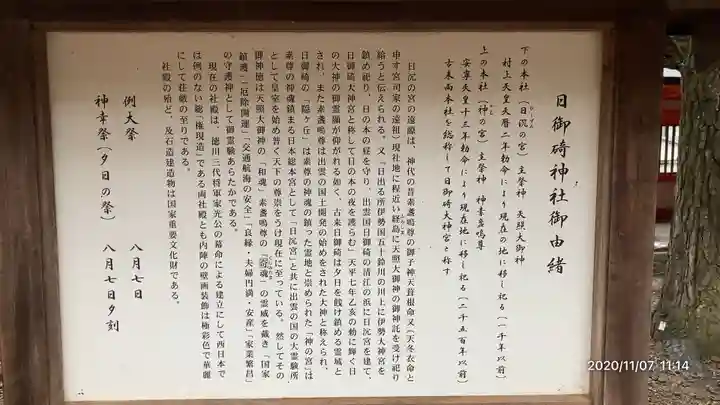 日御碕神社御由緒
下の本社（日沉の宮）主祭神 天照大御神
村上天皇天暦二年勅命により現在の地に移し祀る（一千年以前）
上の本社（神の宮）主祭神 神素盞嗚尊
安寧天皇十三年勅命により現在地に移し祀る（二千五百年以前）
古来両本社を総称して日御碕大神宮と称す
日沉の宮の遠源は、神代の昔素盞嗚尊の御子神天葺根命又（天冬衣命と
申す宮司家の遠祖）現社地に程近い経島に天照大御神の御神託を受け祀り
給うと伝えられる。又「日出る所伊勢国五十鈴川の川上に伊勢大神宮を
鎮め祀り、日の本の昼を守り、出雲国日御碕の清江の浜に日沉宮を建て、
日御碕大神宮と称して日の本の夜を護らむ」天平七年乙亥の勅に輝く日
の大神の御霊顕が仰がれる如く、古来日御碕は夕日を餞け鎮める霊域と
され、また素盞嗚尊は出雲の国土開発の始めをされた大神と称えられ、
日御碕の「隠ヶ丘」は素尊の神魂の鎮った霊地と崇められた「神の宮」は
素尊の神魂鎮まる日本総本宮として「日沉宮」と共に出雲の国の大霊験所
として皇室を始め普く天下の尊崇をうけ現在に至っている。然してその
御神徳は天照大御神の「和魂」素盞嗚尊の「奇魂」の霊威を戴き「国家
鎮護」「厄除開運」「交通航海の安全」「良縁・夫婦円満・安産」「家業繁昌」
の守護神として御霊験あらたかである。
現在の社殿は、徳川三代将軍家光公の幕命による建立にして西日本で
は例のない総「権現造」である両社殿とも内陣の壁画装飾は極彩色で華麗
にして荘厳の至りである。
社殿の殆ど、及石造建造物は国家重要文化財である。
例大祭 八月七日
神幸祭（夕日の祭） 八月七日夕刻
2020/11/07 11:14